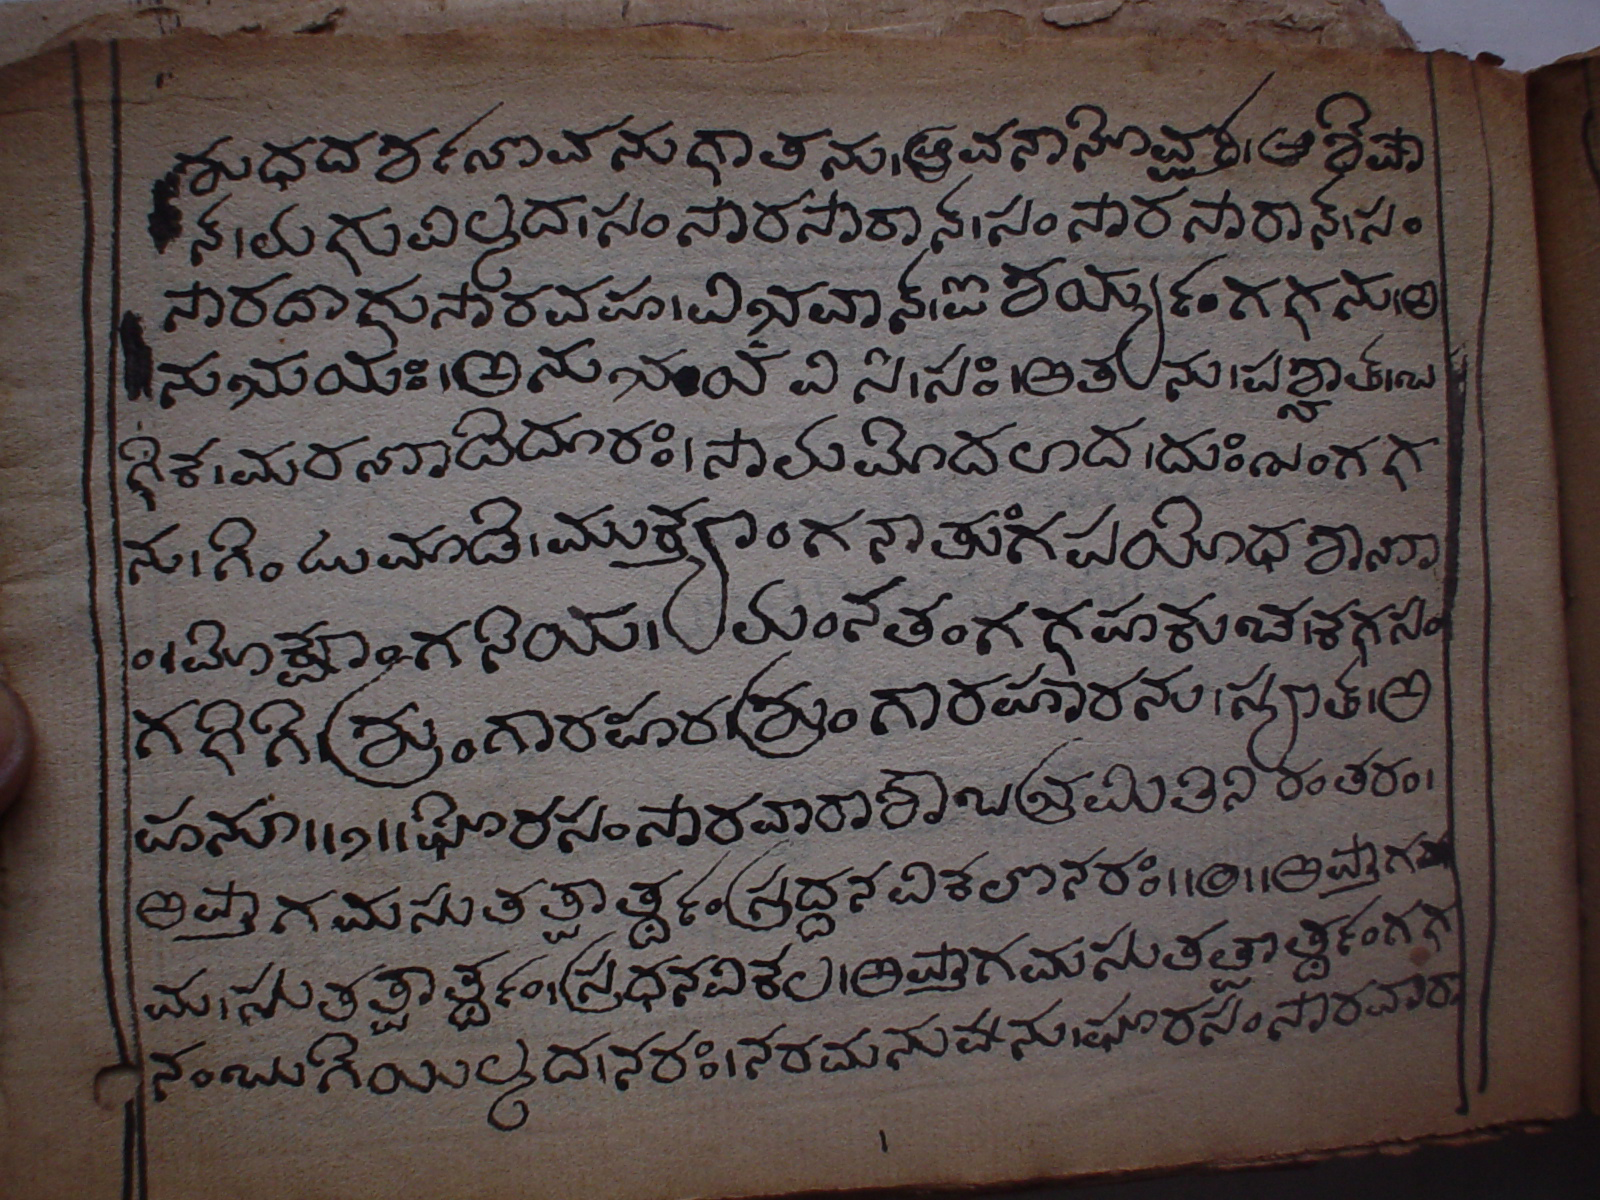 ಶುಧದರ್ಶನಾವನುಗಾತನು।ಆವನಾನೊವ್ವ।ಆಶೇಷಾ
ನ್।ಮಗುವಿಲ್ಲದ।ಸಂಸಾರಸಾರಾನ್।ಸಂಸಾರಸಾರಾನ್।ಸಂ
ಸಾರದಾಗುಸಾರವಹ।ವಿಭವಾನ್।ಐಶಯ್ಯರ್ಂಗಗ್ಗನು।ಅ
ನುಭಯಃ।ಅನುಭಯ ವಿಸಿ।ಸಃ।ಅತನು।ಪಶ್ಚಾತ್।ಬ
ಗ್ಗಿಕ।ಮರಣಾದಿದೂರಃ।ಸಾಮಮೊದಲಾದ।ದುಃಖಂಗಗ್ಗ
ನು।ಗಿಂಟುಮಾಡಿ।ಮುಕ್ತ್ಯಾಂಗನಾತುಂಗಪಯೋಧರಾಣಾ
ಂ।ಮೋಕ್ಷಾಂಗನೆಯ।ಮಂನತಂಗಗ್ಗಹಕುಚ।ಕಗ್ಗಸಂ
ಗಗ್ಗಿಗ್ಗೆ।ಶ್ರುಂಗಾರಹಾರ।ಶ್ರುಂಗಾರಹಾರನು।ಸ್ಯಾತ್।ಅ
ಹನೂ॥೧॥ಘೋರಸಂಸಾರವಾರಾಶೌಬಭ್ರಮಿತಿನಿರಂತರಂ।
ಅಪ್ತಾಗಮಸುತತ್ವಾರ್ತ್ಥಂಸ್ರದ್ದನವಿಕಲೊನರಃ॥೨॥ಅಪ್ತಾಗ
ಮ।ಸುತತ್ವಾರ್ತ್ಥಂ।ಸ್ರಧನವಿಕಲ।ಅಪ್ತಾಗಮಸುತತ್ವಾರ್ತ್ಥಂಗಗ್ಗ
ನಂಬುಗೆಯಿಲ್ಲದ।ನರಃ।ನರಮನುಷನು।ಘೋರಸಂಸಾರವಾರಾ